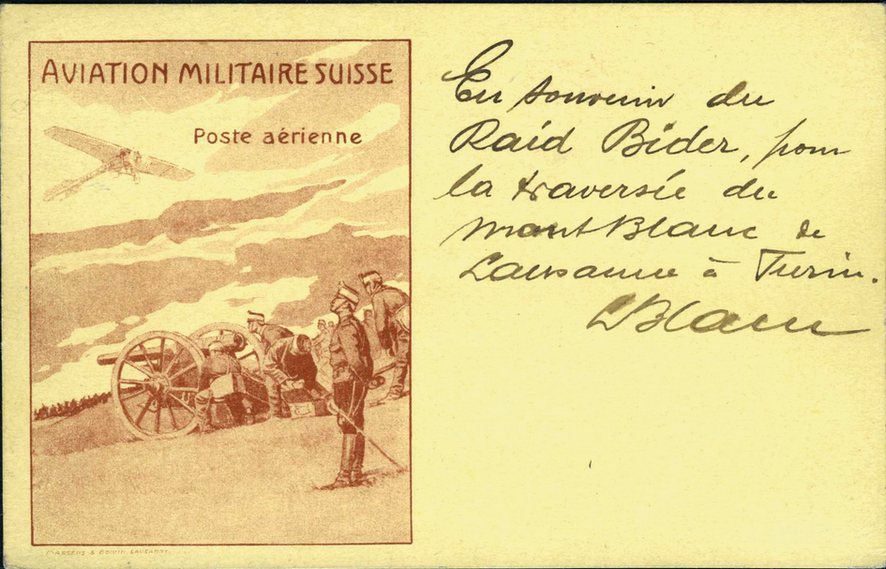 AVIATION MILITAIRE SUISSE
Poste aérienne
En souvenir du
Raid Bider, pour
la traversée du
Mont Blanc de
Lausanne à Turin.
LBlanc